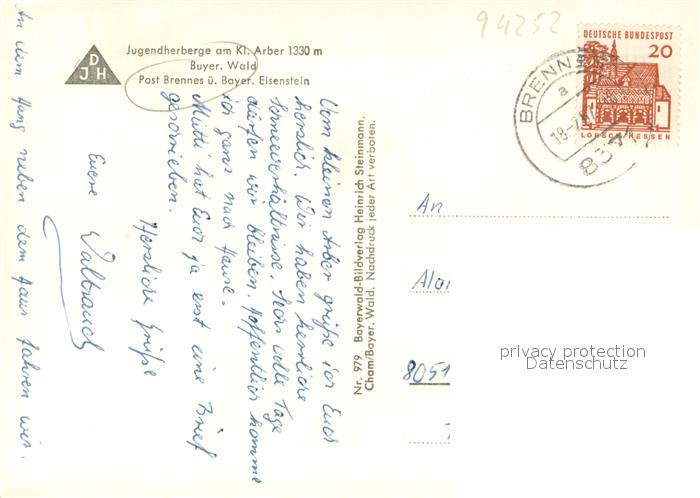 94252
D
JH
Jugendherberge am Kl. Arber 1330 m
Buyer. Wald
Post Brennes ü. Bayer. Eisenstein
DEUTSCHE BUNDESPOST
20
LORSCH/HESSEN
BRENNES
a
18-7
8371
Vom kleinen Arber grüße ich Euch
herzlich. Wir haben herrliche
Schneeverhältnisse. Sechs volle Tage
dürfen wir bleiben. Hoffentlich komme
ich ganz nach Hause.
Mutti hat Euch ja erst eine Brief
geschrieben.
Herzliche Grüße
Euere Waltraud
An dem Hang neben dem Haus fahren wir.
Nr. 979 Bayerwald-Bildverlag Heinrich Steinmann,
Cham/Bayer. Wald. Nachdruck jeder Art verboten.
An
8051
privacy protection
Datenschutz